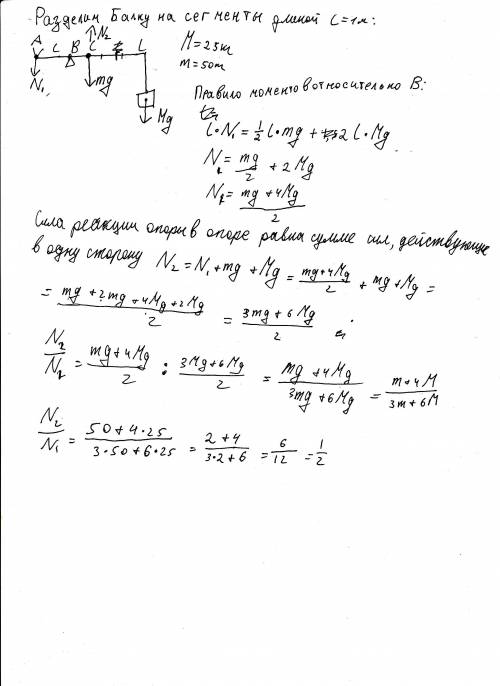 Разделим балку на сегменты длиной l=1м:
A l B l N₂ L
N₁ mg Mg
M=25кг
m=50кг
Правило моментов относительно B:
l·N₁ = 1/2 l·mg + 2l·Mg
N₁ = mg/2 + 2Mg
N₁ = (mg+4Mg)/2
Сила реакции опоры в опоре равна сумме сил, действующие
в одну сторону N₂ = N₁ + mg + Mg = (mg+4Mg)/2 + mg + Mg =
= (mg + 2mg + 4Mg + 2Mg)/2 = (3mg + 6Mg)/2
N₂/N₁ = (mg+4Mg)/2 : (3Mg+6Mg)/2 = (mg+4Mg)/(3mg+6Mg) = (m+4M)/(3m+6M)
N₂/N₁ = (50+4·25)/(3·50+6·25) = (2+4)/(3·2+6) = 6/12 = 1/2